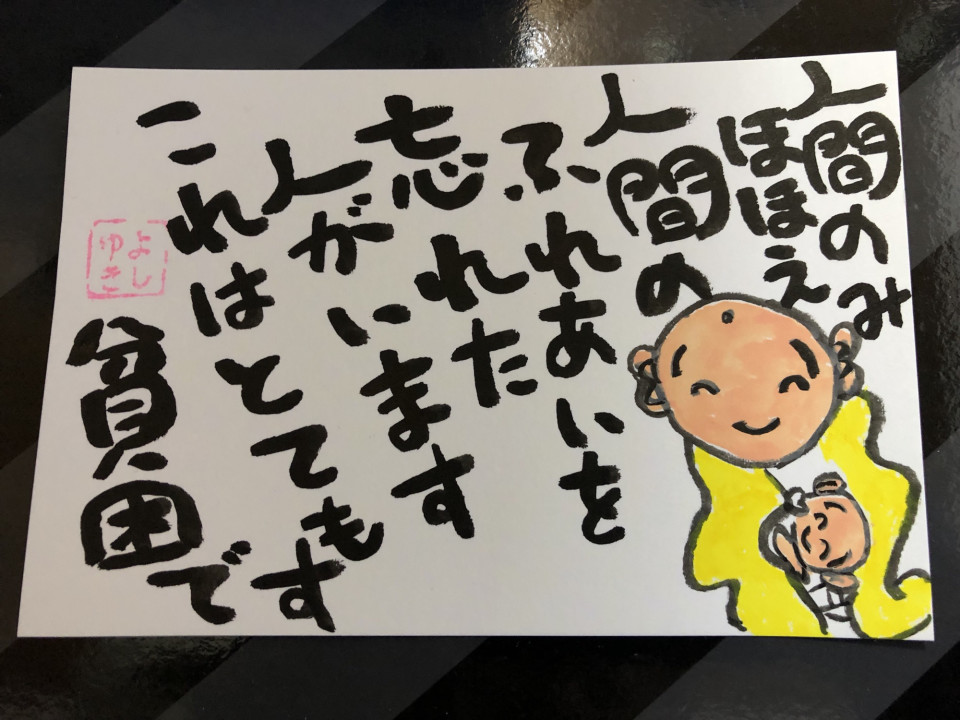 人間の
ほほえみ
人間の
ふれあいを
忘れた
人がいます
これはとても
貧困です
よし
ゆき